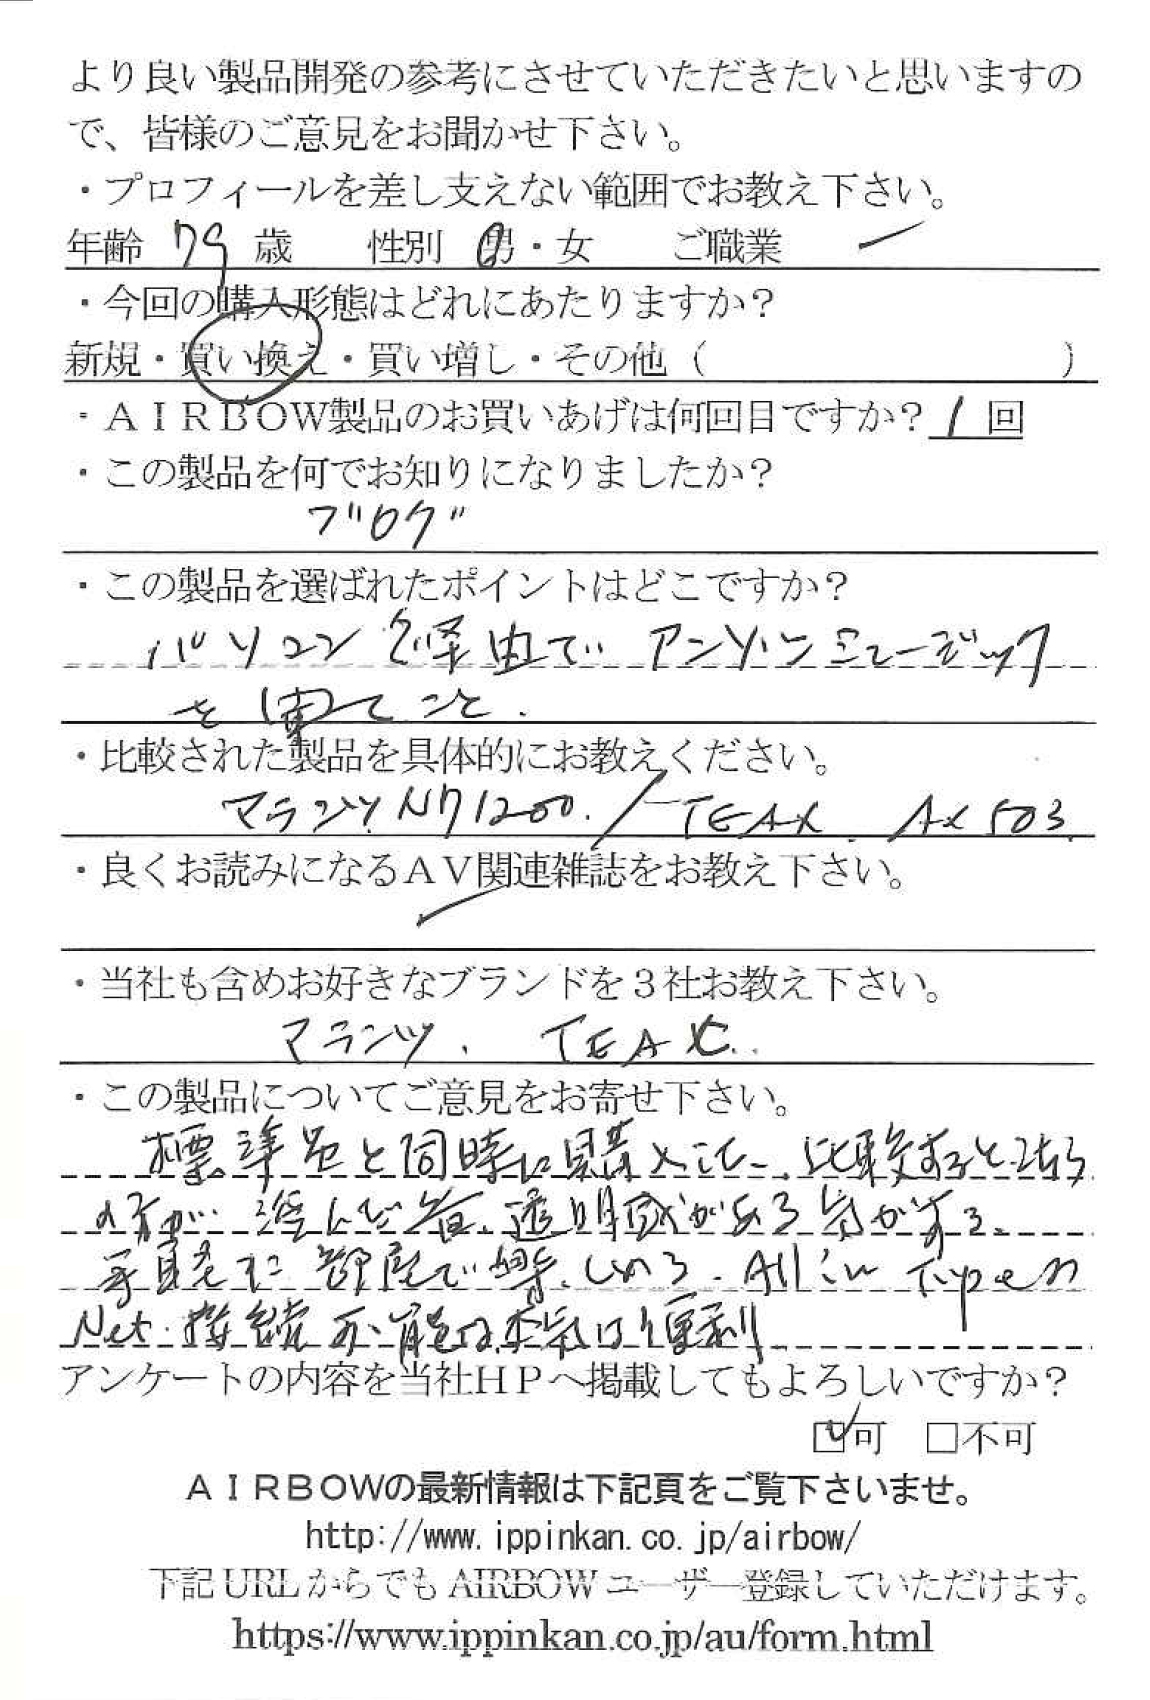 より良い製品開発の参考にさせていただきたいと思いますの
で、皆様のご意見をお聞かせ下さい。
・プロフィールを差し支えない範囲でお教え下さい。
年齢 79 歳 性別 男・女 ご職業
・今回の購入形態はどれにあたりますか？
新規・買い換え・買い増し・その他（ ）
・ＡＩＲＢＯＷ製品のお買いあげは何回目ですか？ 1 回
・この製品を何でお知りになりましたか？
ブログ
・この製品を選ばれたポイントはどこですか？
パソコン経由で アンソンミュージック
を聴てこと.
・比較された製品を具体的にお教えください。
マランツ N71200. / TEAC. AX503.
・良くお読みになるＡＶ関連雑誌をお教え下さい。
・当社も含めお好きなブランドを３社お教え下さい。
マランツ. TEAC..
・この製品についてご意見をお寄せ下さい。
標準品と同時に購入した、比較するとこちら
の方が 澄んだ音、透明感がある気がする。
手軽に 部屋で楽しめる. All in Typeの
Net.接続 可能は本気は便利
アンケートの内容を当社ＨＰへ掲載してもよろしいですか？
□可 □不可
ＡＩＲＢＯＷの最新情報は下記頁をご覧下さいませ。
http://www.ippinkan.co.jp/airbow/
下記 URL からでも AIRBOW ユーザー登録していただけます。
https://www.ippinkan.co.jp/au/form.html